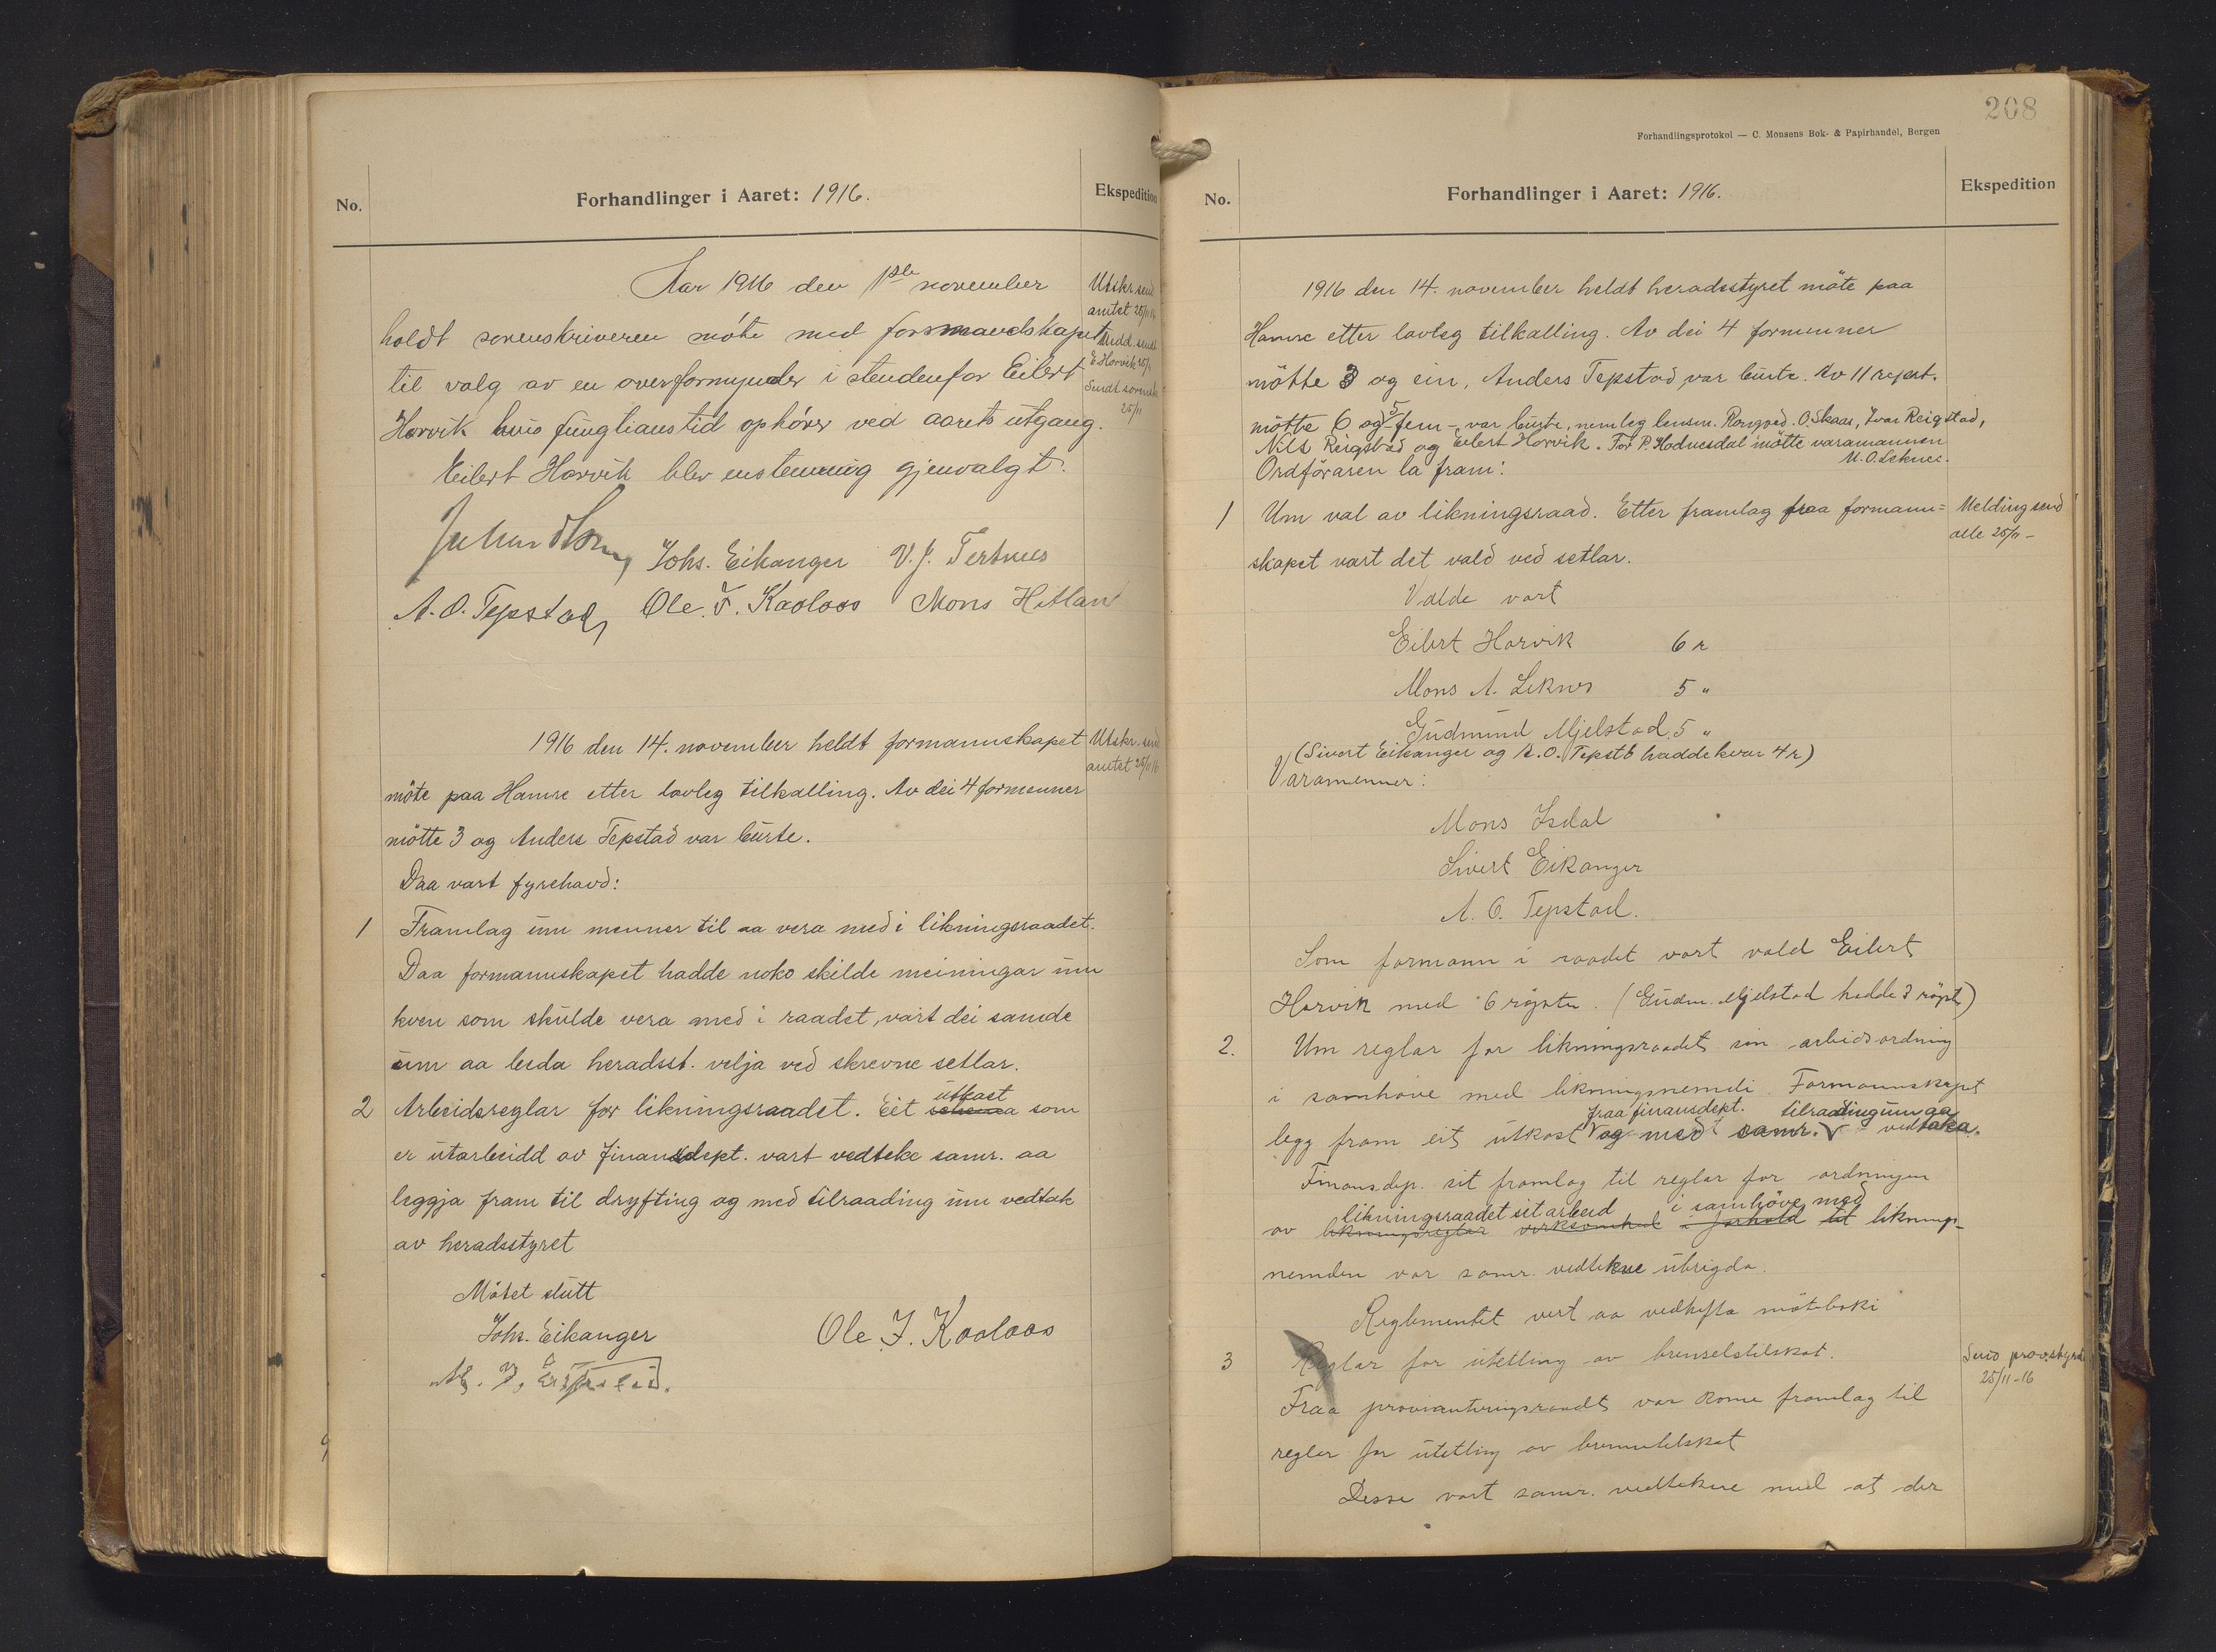 No.
Forhandlinger i Aaret: 1916.
Ekspedition
Aar 1916 den 1ste november
holdt sorenskriveren møte med formandskapet
til valg av en overformynder i stedenfor Eilert
Horvik hvis fungtianstid ophörer ved aarets utgang.
Eilert Horvik blev enstemmig gjenvalgt.
Utskr. send
amtet 25/11 16
Medd. sendt
E. Horvik 25/11
Sendt sorenskr.
25/11
Johs. Eikanger V. J. Tertnes
A. O. Tepstad, Ole. J. Kaalaas Mons Hitland
1916 den 14. november heldt formannskapet
möte paa Hamre etter lovleg tilkalling. Av dei 4 formenner
mötte 3 og Anders Tepstad var burte.
Utskr. send
amtet 25/11 16
Daa vart fyrehavd:
1 Framlag um menner til aa vera med i likningsraadet.
Daa formannskapet hadde noko skilde meiningar um
kven som skulde vera med i raadet, vart dei samde
um aa beda heradsst. velja ved skrevne setlar.
utkast
2 Arbeidsreglar for likningsraadet. Eit schema som
er utarbeidd av finansdept. vart vedteke samr. aa
leggja fram til dryfting og med tilraading um vedtak
av heradsstyret
Mötet slutt
Johs. Eikanger Ole J. Kaalaas
208
Forhandlingsprotokol — C. Monsens Bok- & Papirhandel, Bergen
No.
Forhandlinger i Aaret: 1916.
Ekspedition
1916 den 14. november heldt heradsstyret möte paa
Hamre etter lovleg tilkalling. Av dei 4 formenner
mötte 3 og ein, Anders Tepstad var burte. Av 11 repst.
mötte 6 og 5 - fem - var burte, nemleg lensm. Rongved. O. Skaar, Ivar Reigstad,
Nils Reigstad og Eilert Horvik. For P. Hodnesdal mötte varamannen
M. O. Leknes.
Ordföraren la fram:
1 Um val av likningsraad. Etter framlag fraa formann=
skapet vart det vald ved setlar.
Melding send
alle 25/11 -
Valde vart
Eilert Horvik 6 r
Mons A. Leknes 5 "
Gudmund Mjelstad. 5 "
(Sivert Eikanger og A. O. Tepstb hadde kvar 4 r)
Varamenner:
Mons Isdal
Sivert Eikanger
A. O. Tepstad.
Som formann i raadet vart vald Eilert
Horvik med 6 röyster. (Gudm. Mjelstad hadde 3 röyst)
2. Um reglar for likningsraadet sin arbeidsordning
i samhöve med likningsnemdi. Formannskapet
fraa finansdept. tilraading um aa
legg fram eit utkast og med samr. vedtaka.
Finansdep. sit framlag til reglar for ordningen
likningsraadet sit arbeid i samhöve med
av likningsreglar verksomhed i forhold til liknings-
nemden var samr. vedtekne ubrigda.
Reglementet vert aa vedhefta möteboki
3 Reglar for utetling av brenselstilskot.
Send prov.styret
25/11-16
Fraa provianteringsraadet var kome framlag til
reglar for utetling av brenneltilskot
Desse vart samr. vedtekne med at der